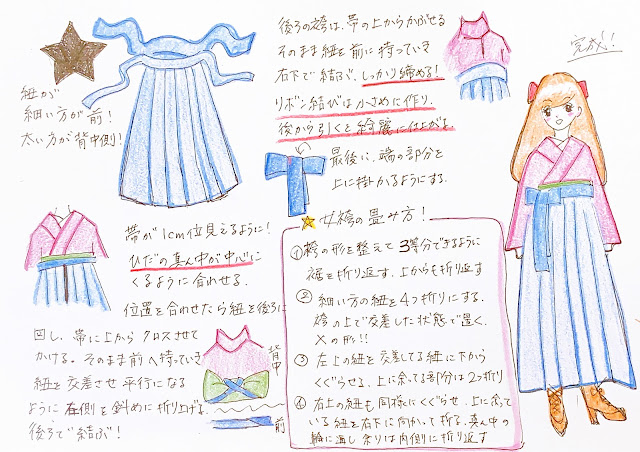 紐が
細い方が前!
太い方が背中側!
帯が1cm位見えるように!
ひだの真ん中が中心に
くるように合わせる。
位置を合わせたら紐を後ろに
回し、帯に上からクロスさせて
かける。そのまま前へ持っていき
紐を交差させ平行になる
ように右側を斜めに折り上げる。
後ろで結ぶ!
背中
前
後ろの袴は、帯の上からかぶせる
そのまま紐を前に持っていき
右下で結ぶ、しっかり締める!
リボン結びは小さめに作り、
後から引くと綺麗に仕上がる
最後に、端の部分を
上に掛かるようにする。
女袴の畳み方!
①袴の形を整えて3等分できるように
裾を折り返す。上からも折り返す
②細い方の紐を4つ折りにする。
袴の上で交差した状態で置く。
Xの形!!
③左上の紐を交差してる紐に下から
くぐらせる。上に余てる部分は2つ折り
④右上の紐も同様にくぐらせ、上に余って
いる紐を右下に向かって折る。真ん中の
輪に通し余りは内側に折り返す
完成!